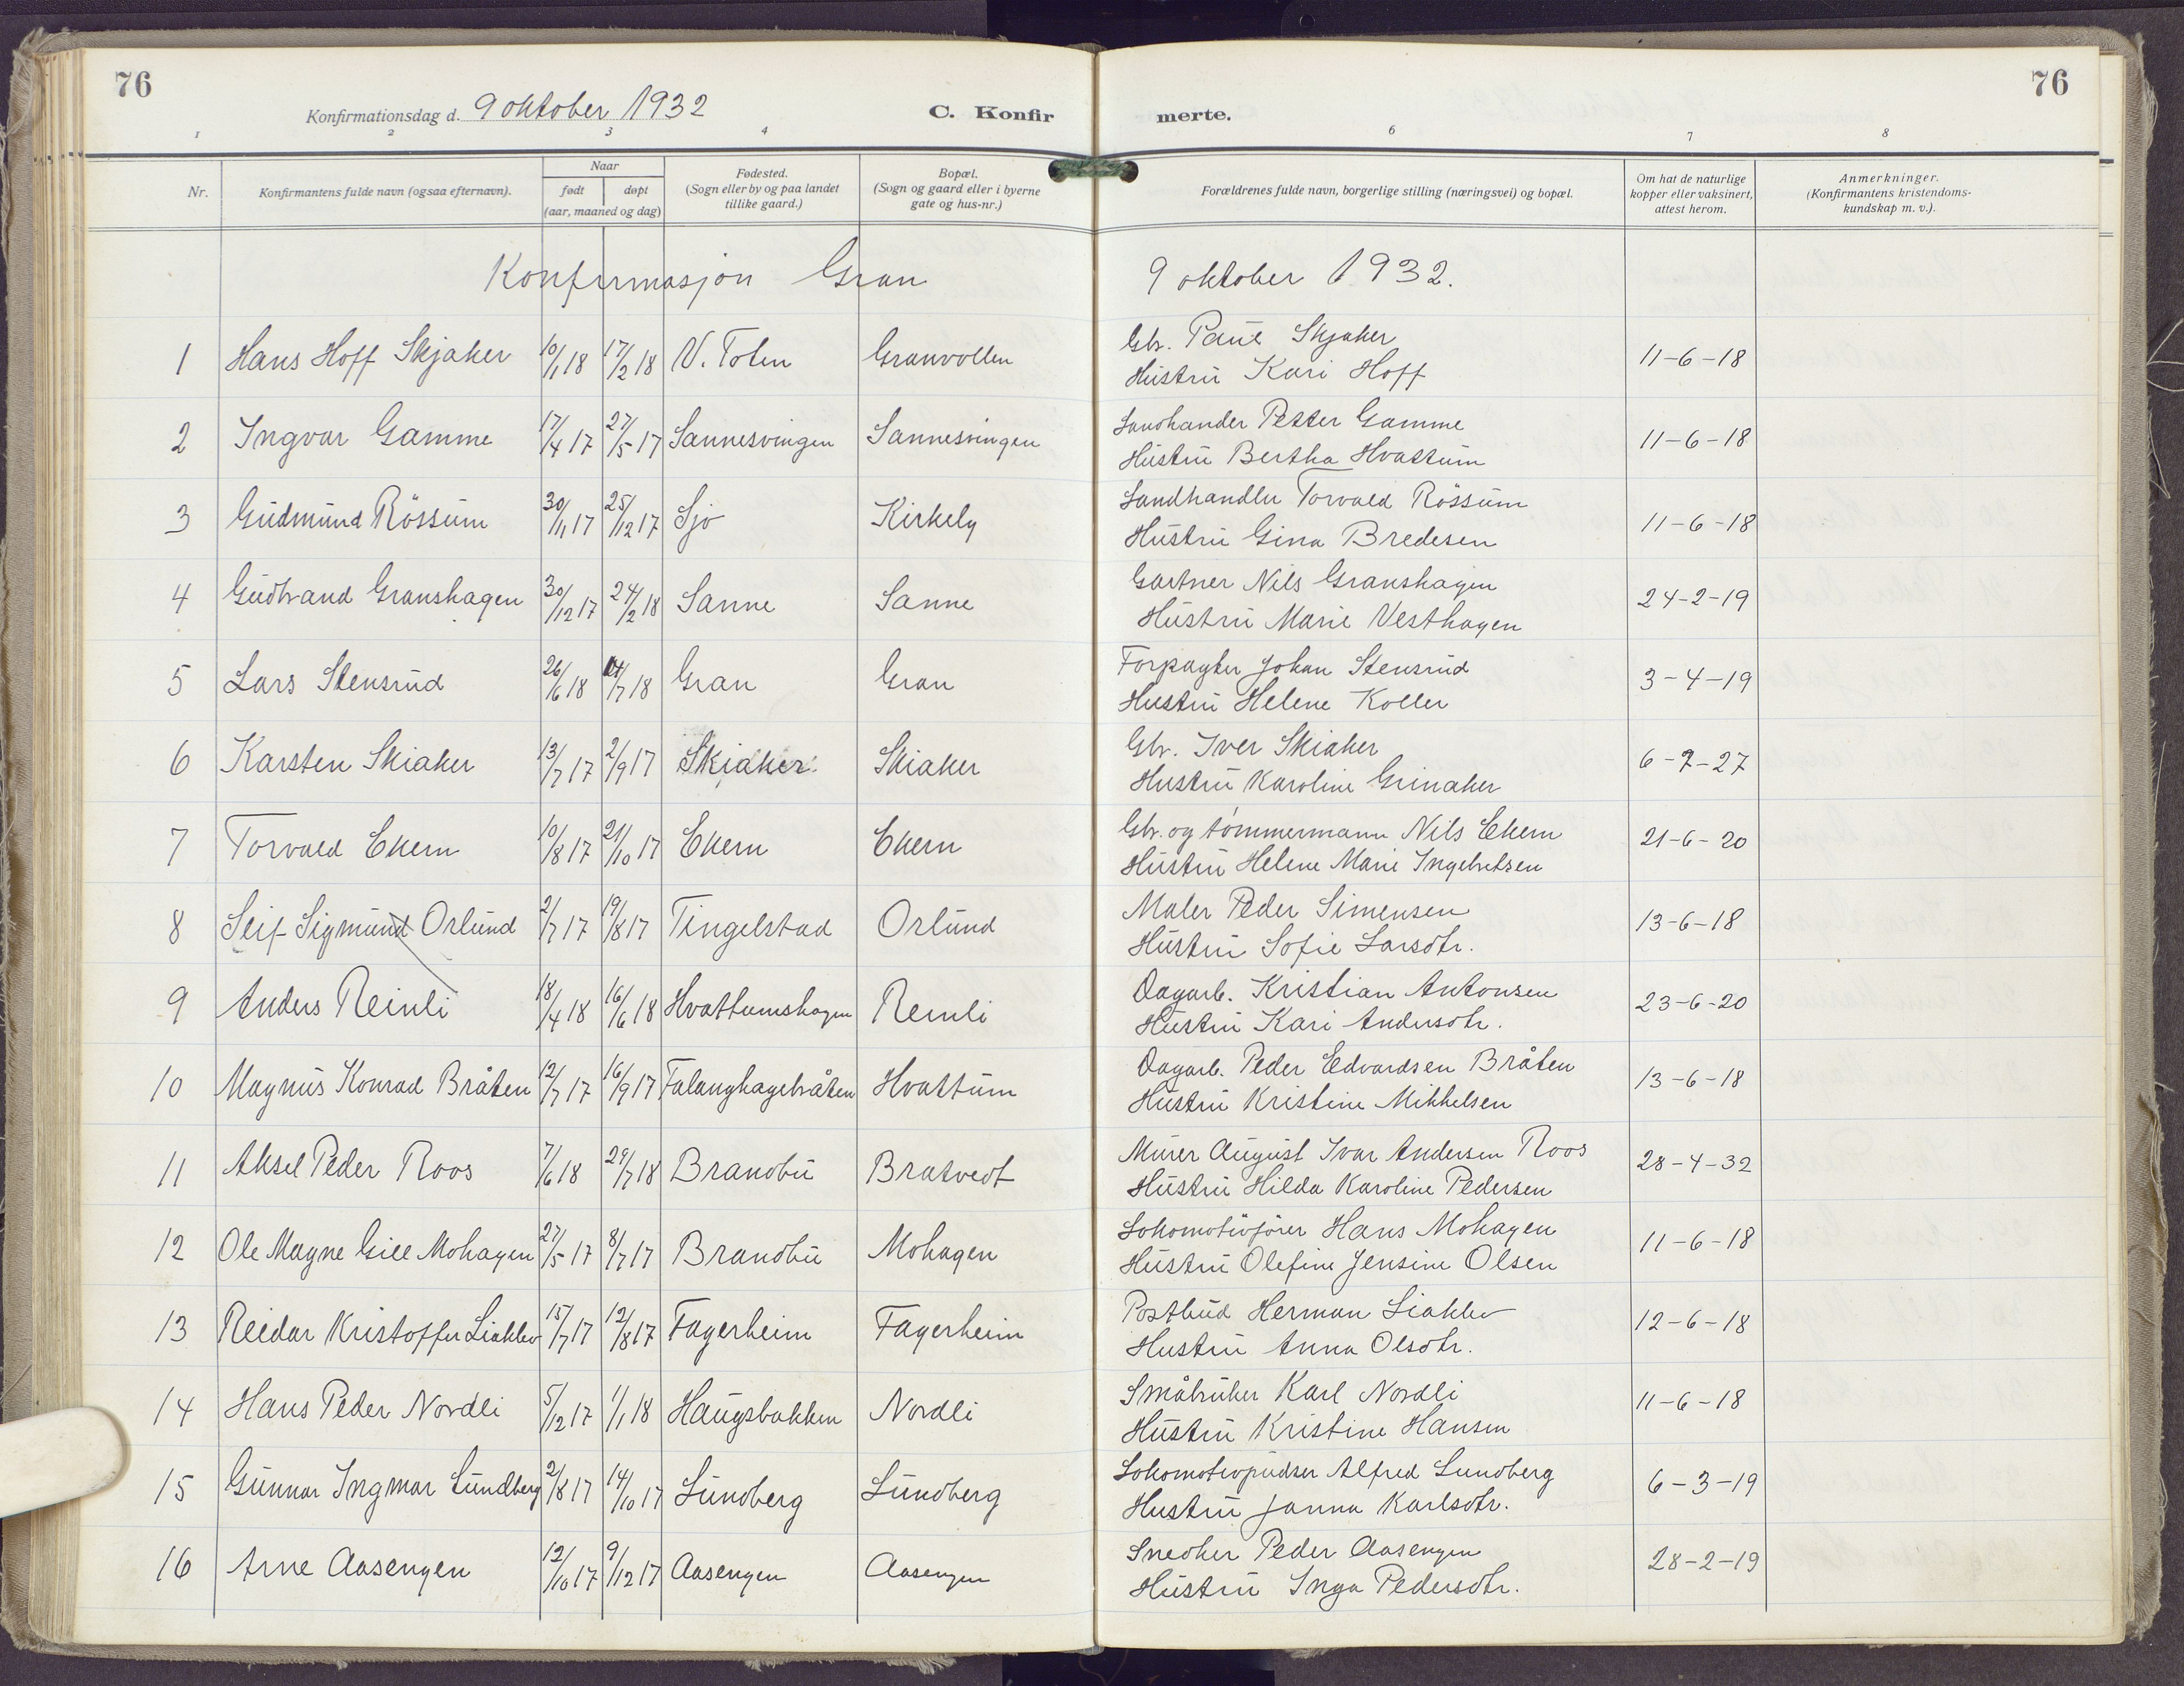 76
76
Konfirmationsdag d. 9 oktober 1932
C. Konfir merte.
1 2 3 4 6 7 8
Nr.
Konfirmantens fulde navn (ogsaa efternavn).
Naar
født
døpt
(aar, maaned og dag)
Fødested.
(Sogn eller by og paa landet
tillike gaard.)
Bopæl.
(Sogn og gaard eller i byerne
gate og hus-nr.)
Forældrenes fulde navn, borgerlige stilling (næringsvei) og bopæl.
Om hat de naturlige
kopper eller vaksinert,
attest herom.
Anmerkninger.
(Konfirmantens kristendoms-
kundskap m. v.).
Konfirmasjon Gran 9 oktober 1932.
1 Hans Hoff Skjaker 10/1 18 17/2 18 V. Toten Granvollen Gbr. Paul Skjaker 11-6-18
Hustru Kari Hoff
2 Ingvar Gamme 17/4 17 27/5 17 Sannesvingen Sannesvingen Landhandler Petter Gamme 11-6-18
Hustru Bertha Hvattum
3 Gudmund Røssum 30/11 17 25/12 17 Sjo Kirkely Landhandler Torvald Røssum 11-6-18
Hustru Gina Bredesen
4 Gudbrand Granshagen 30/12 17 24/2 18 Sanne Sanne Gartner Nils Granshagen 24-2-19
Hustru Marie Vesthagen
5 Lars Stensrud 26/6 18 /7 18 Gran Gran Forpagter Johan Stensrud 3-4-19
Hustru Helene Koller
6 Karsten Skiaker 13/7 17 2/9 17 Skiaker Skiaker Gbr. Iver Skiaker 6-7-27
Hustru Karoline Grinaker
7 Torvald Ekern 10/8 17 21/10 17 Ekern Ekern Gbr. og tømmermann Nils Ekern 21-6-20
Hustru Helene Marie Ingebretsen
8 Leif Sigmund Orlund 2/7 17 19/8 17 Tingelstad Orlund Maler Peder Simensen 13-6-18
Hustru Sofie Larsdtr.
9 Anders Reinli 18/4 18 16/6 18 Hvattumshagen Reinli Dagarb. Kristian Antonsen 23-6-20
Hustru Kari Andersdtr.
10 Magnus Konrad Bråten 12/7 17 16/9 17 Falanghagebråten Hvattum Dagarb. Peder Edvardsen Bråten 13-6-18
Hustru Kristine Mikkelsen
11 Aksel Peder Roos 7/6 18 29/7 18 Brandbu Bratvedt Murer August Ivar Andersen Roos 28-4-32
Hustru Hilda Karoline Pedersen
12 Ole Magne Gill Mohagen 27/5 17 8/7 17 Brandbu Mohagen Lokomotivfører Hans Mohagen 11-6-18
Hustru Olefine Jensine Olsen
13 Reidar Kristoffer Liaklev 15/7 17 12/8 17 Fagerheim Fagerheim Postbud Herman Liaklev 12-6-18
Hustru Anna Olsdtr.
14 Hans Peder Nordli 5/12 17 1/1 18 Haugsbakken Nordli Småbruker Karl Nordli 11-6-18
Hustru Kristine Hansen
15 Gunnar Ingmar Lundberg 2/8 17 14/10 17 Lundberg Lundberg Lokomotivpudser Alfred Lundberg 6-3-19
Hustru Janna Karlsdtr.
16 Arne Aasengen 12/10 17 9/12 17 Aasengen Aasengen Snedker Peder Aasengen 28-2-19
Hustru Inga Pedersdtr.